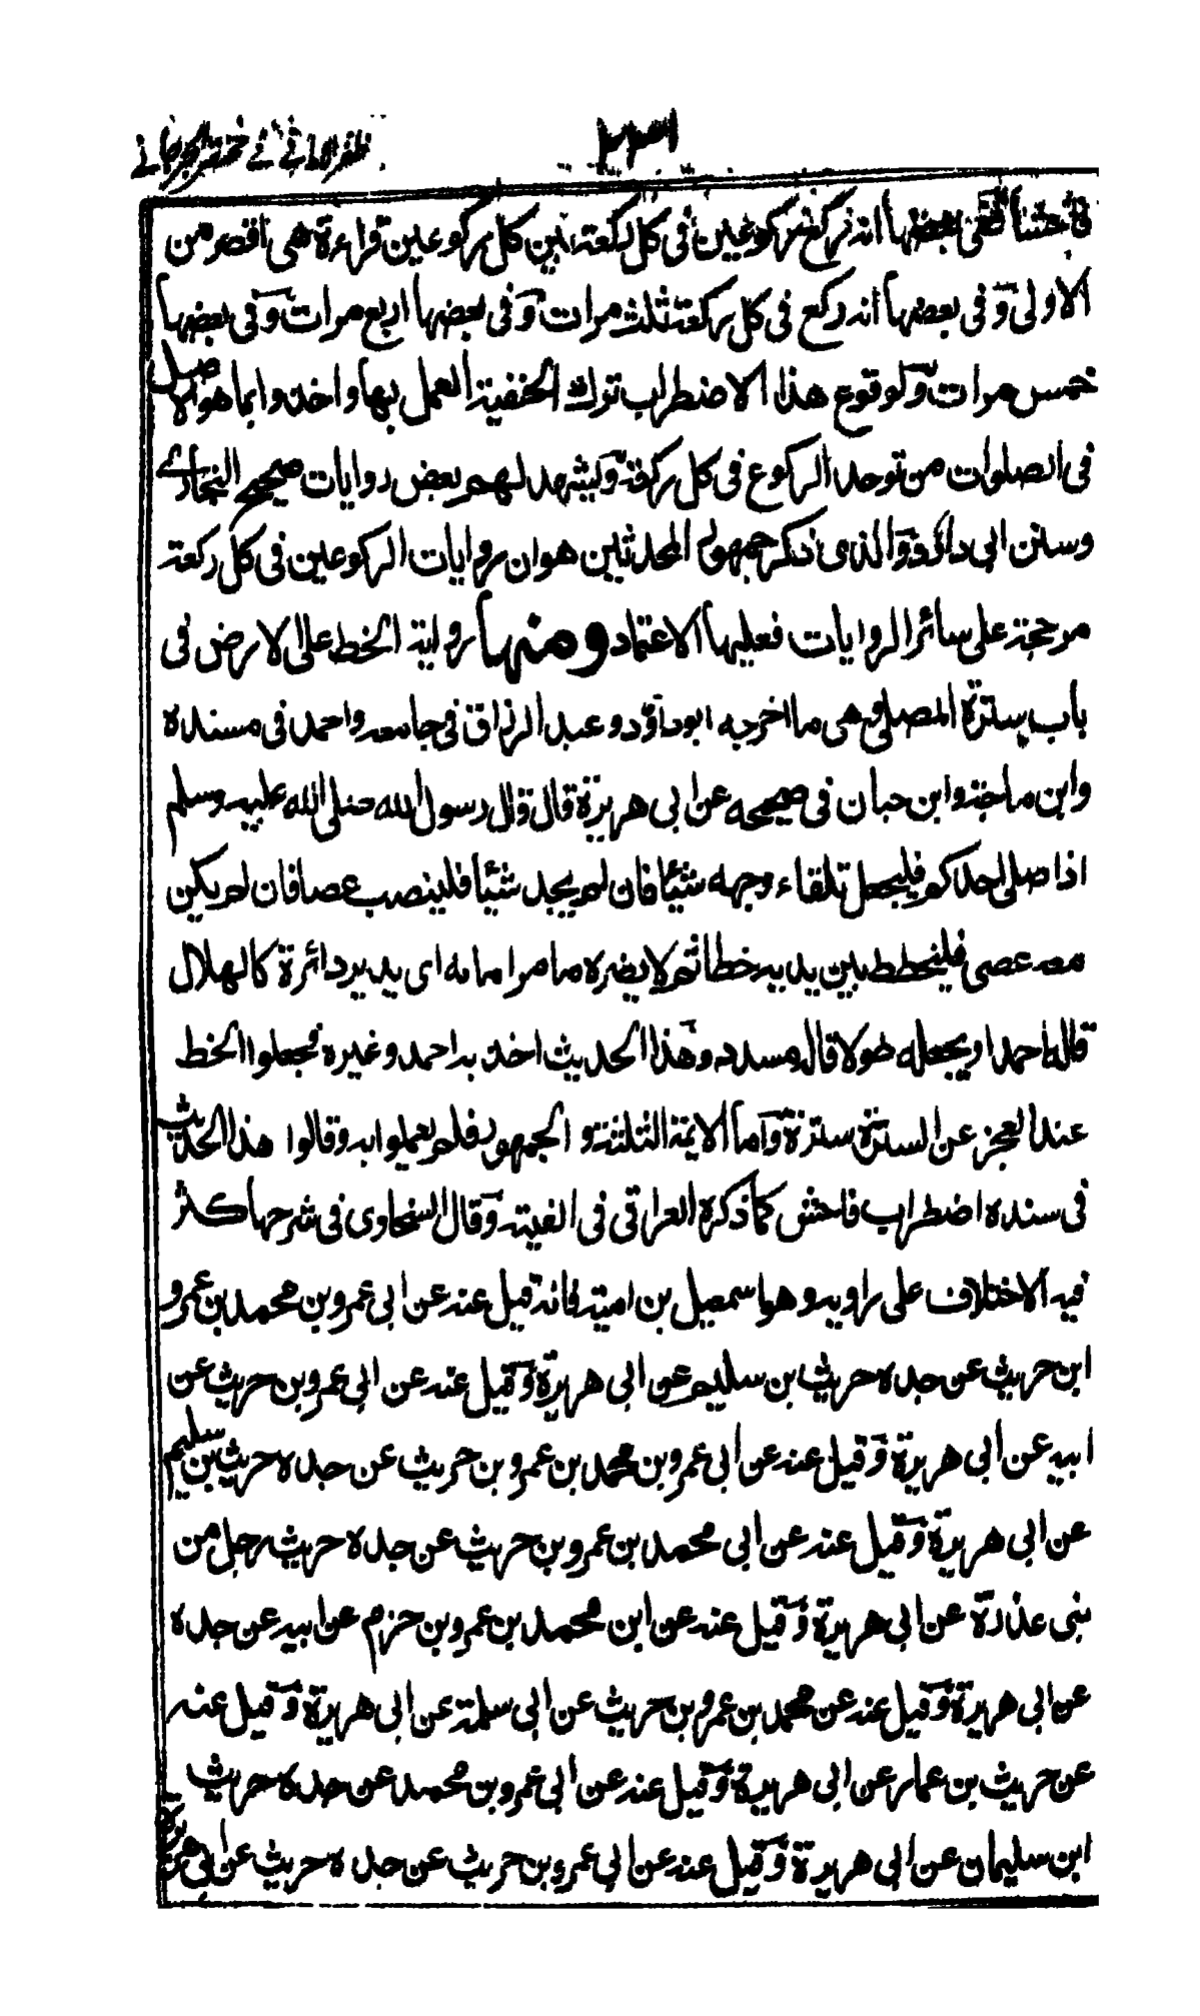 ظفر الامانی فی مختصر الجرجانی
ففی بعضها انه رکع رکوعین فی کل رکعة بین کل رکوعین قراءة هی اقصر من
الاولی وفی بعضها انه رکع فی کل رکعة ثلث مرات وفی بعضها اربع مرات وفی بعضها
خمس مرات ولوقوع هذا الاضطراب ترك الحنفیة العمل بها واخذوا بما هو الاصل
فی الصلوات من توحد الرکوع فی کل رکعة ویشهد لهم بعض روایات صحیح البخاری
وسنن ابی داؤد والذی ذکر جمهور المحدثین هو ان روایات الرکوعین فی کل رکعة
مرجحة علی سائر الروایات فعلیها الاعتماد ومنها روایة الخط علی الارض فی
باب سترة المصلی وهی ما اخرجه ابو داؤد وعبد الرزاق فی جامعه واحمد فی مسنده
وابن ماجة وابن حبان فی صحیحه عن ابی هریرة قال قال رسول الله صلی الله علیه وسلم
اذا صلی احدکم فلیجعل تلقاء وجهه شیئا فان لم یجد شیئا فلینصب عصا فان لم یکن
معه عصی فلیخطط بین یدیه خطا ثم لا یضره ما مر امامه ای یدیر دائرة کالهلال
قاله احمد او یجعله طولا قال مسدد وهذا الحدیث اخذ به احمد وغیره فجعلوا الخط
عند العجز عن السترة سترة واما الایمة الثلثة والجمهور فلم یعملوا به وقالوا هذا الحدیث
فی سنده اضطراب فاحش کما ذکره العراقی فی الفیته وقال السخاوی فی شرحها کثر
فیه الاختلاف علی راویه وهو اسمعیل بن امیة فانه قیل عنه عن ابی عمرو بن محمد بن عمرو
ابن حریث عن جده حریث بن سلیم عن ابی هریرة وقیل عنه عن ابی عمرو بن حریث عن
ابیه عن ابی هریرة وقیل عنه عن ابی عمرو بن محمد بن عمرو بن حریث عن جده حریث بن سلیم
عن ابی هریرة وقیل عنه عن ابی محمد بن عمرو بن حریث عن جده حریث رجل من
بنی عذرة عن ابی هریرة وقیل عنه عن ابن محمد بن عمرو بن حزم عن ابیه عن جده
عن ابی هریرة وقیل عنه عن محمد بن عمرو بن حریث عن ابی سلمة عن ابی هریرة وقیل عنه
عن حریث بن عمار عن ابی هریرة وقیل عنه عن ابی عمرو بن محمد عن جده حریث
ابن سلیمان عن ابی هریرة وقیل عنه عن ابی عمرو بن حریث عن جده حریث عن ابی هریرة